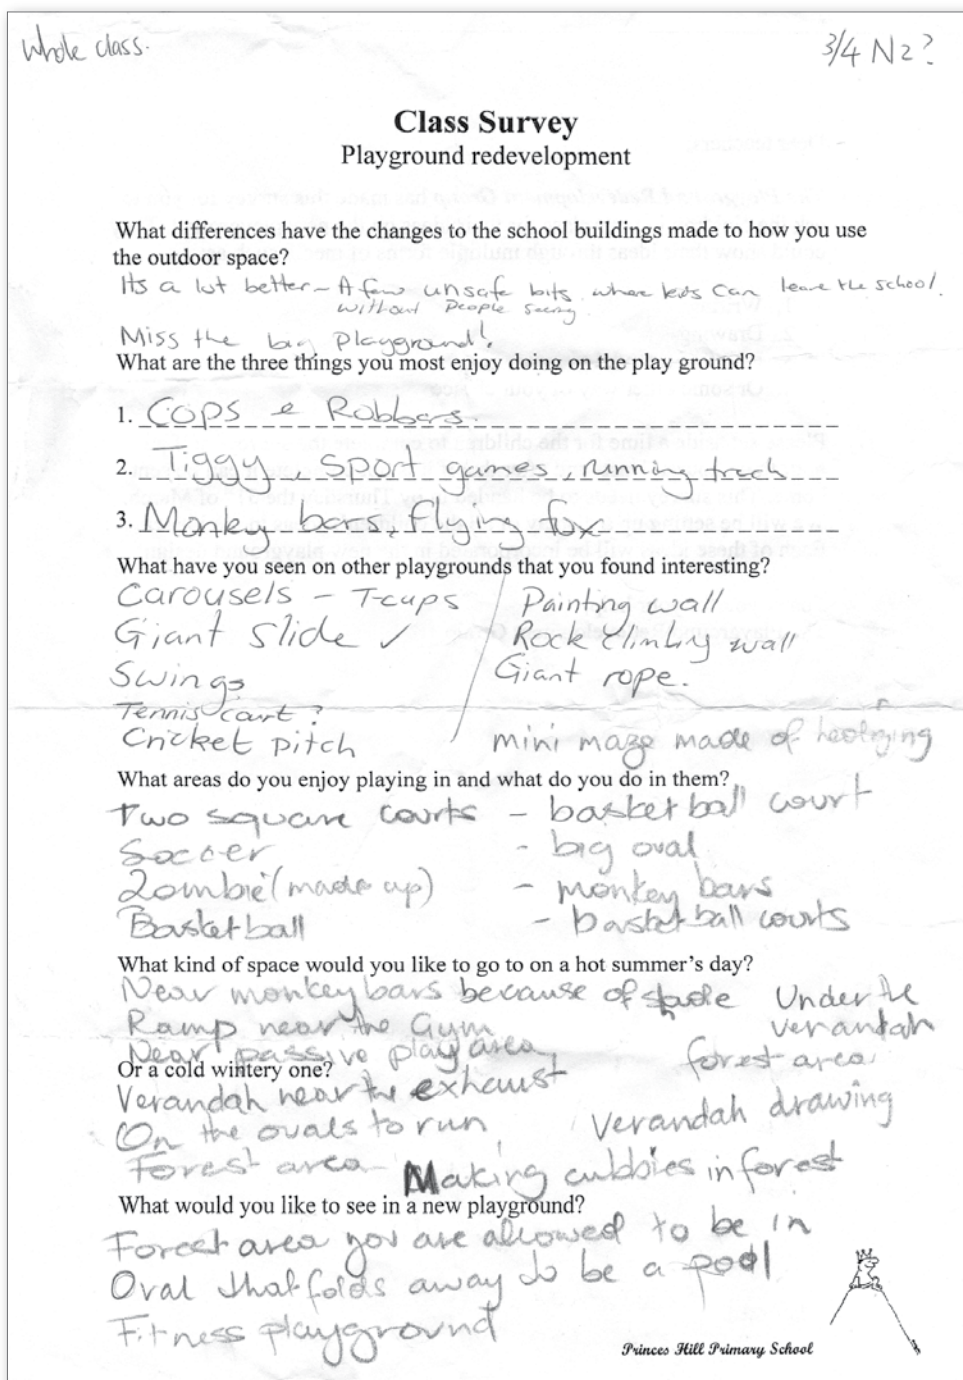 Whole class.
3/4 N2?
Class Survey
Playground redevelopment
What differences have the changes to the school buildings made to how you use
the outdoor space?
Its a lot better – A few unsafe bits where kids can leave the school.
without people seeing
Miss the big playground!
What are the three things you most enjoy doing on the play ground?
1. Cops & Robbers
2. Tiggy sport games, running track
3. Monkey bars, flying fox
What have you seen on other playgrounds that you found interesting?
Carousels – T-cups
Giant slide ✓
Swings
Tennis court?
Cricket pitch
Painting wall
Rock climbing wall
Giant rope.
mini maze made of
What areas do you enjoy playing in and what do you do in them?
Two square courts – basketball court
Soccer – big oval
Zombie (made up) – monkey bars
Basketball – basketball courts
What kind of space would you like to go to on a hot summer's day?
Near monkey bars because of shade
Ramp near the Gym
Near passive play area
Under the
verandah
forest area
Or a cold wintery one?
Verandah near the exhaust
On the ovals to run
Verandah drawing
Forest area – Making cubbies in forest
What would you like to see in a new playground?
Forest area you are allowed to be in
Oval that folds away to be a pool
Fitness playground
Princes Hill Primary School